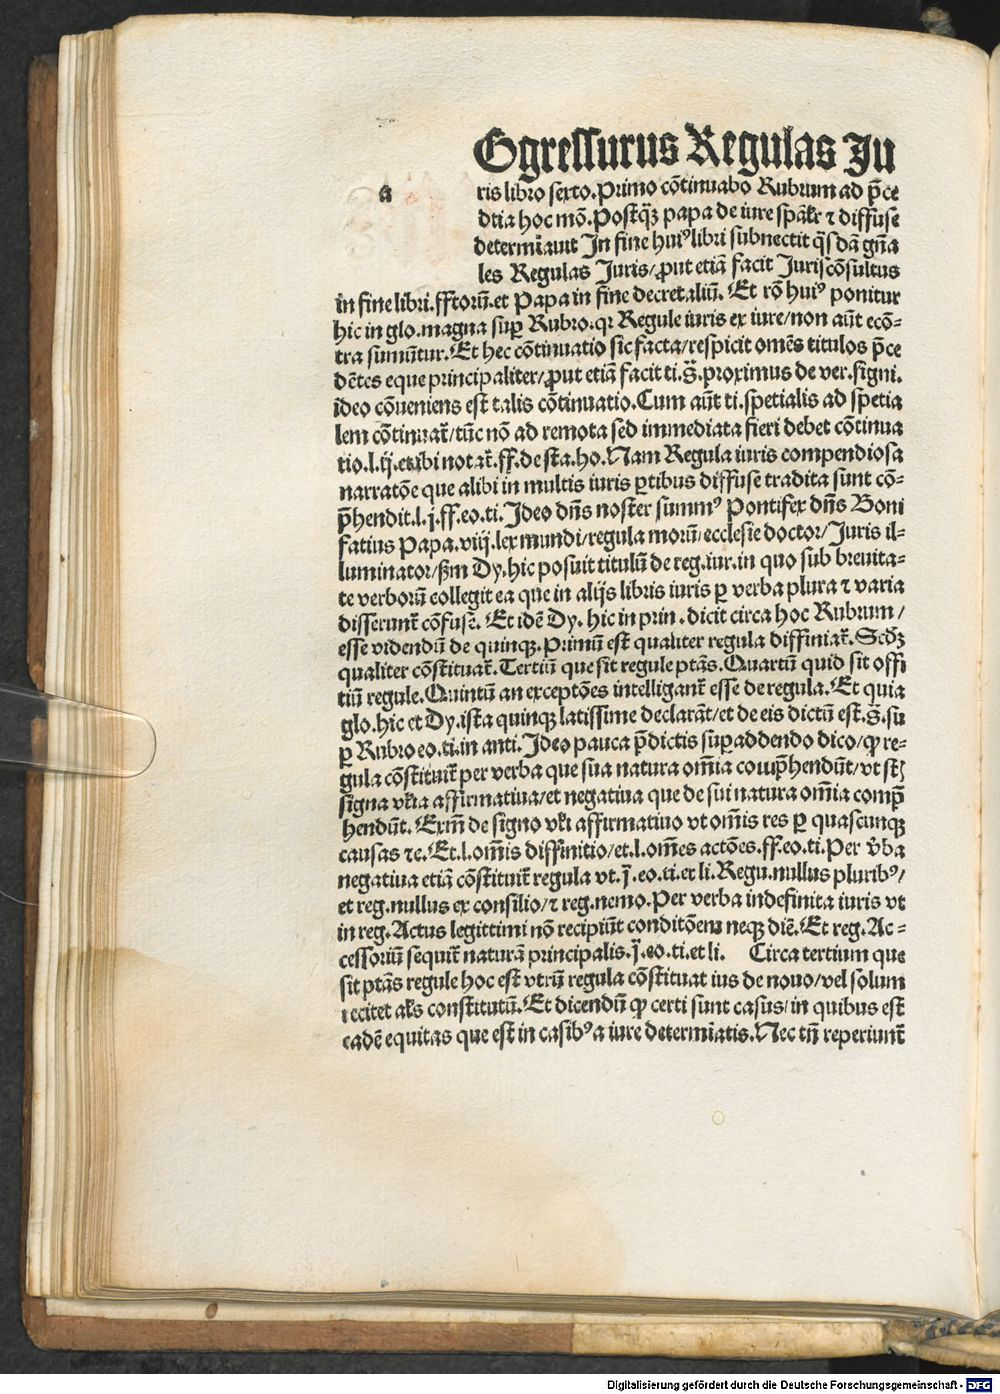 Ggressurus Regulas Ju
a
ris libro sexto. Primo cōtinuabo Rubrum ad p̄ce
dtia hoc mō. Postq̄ꝫ papa de iure spāłr ⁊ diffuse
determīauit In fine huiꝰ libri subnectit q̄sdā gn̄a
les Regulas Juris/ꝓut etiā facit Juriscōsultus
in fine libri. fftorū. et Papa in fine decretaliū. Et rō huiꝰ ponitur
hic in glo. magna suꝑ Rubro. qꝛ Regule iuris ex iure/non aūt ecō-
tra sumūtur. Et hec cōtinuatio sic facta/respicit omēs titulos p̄ce
dētes eque principaliter/ꝓut etiā facit ti. s̄. proximus de ver. signi.
ideo cōueniens est talis cōtinuatio. Cum aūt ti. spetialis ad spetia
lem cōtinuat̄/tūc nō ad remota sed immediata fieri debet cōtinua
tio. l. ij. et ibi notat̄. ff. de sta. ho. Nam Regula iuris compendiosa
narratōe que alibi in multis iuris ꝑtibus diffuse tradita sunt cō-
p̄hendit. l. j. ff. eo. ti. Ideo dn̄s noster summꝰ Pontifex dn̄s Boni
fatius Papa. viij. lex mundi/regula morū/ecclesie doctor/Juris il-
luminator/ẜm Dy. hic posuit titulū de reg. iur. in quo sub breuita-
te verborū collegit ea que in alijs libris iuris ꝑ verba plura ⁊ varia
disserunt̄ cōfuse. Et idē Dy. hic in prin. dicit circa hoc Rubrum/
esse videndū de quinqꝫ. Primū est qualiter regula diffiniat̄. Scdꝫ
qualiter cōstituat̄. Tertiū que sit regule ptās. Quartū quid sit offi
tiū regule. Quintū an exceptōes intelligant̄ esse de regula. Et quia
glo. hic et Dy. ista quinqꝫ latissime declarāt/et de eis dictū est. s̄. su
ꝑ Rubro eo. ti. in anti. Ideo pauca p̄dictis suꝑaddendo dico/ꝙ re-
gula cōstituit̄ per verba que sua natura om̄ia comp̄hendūt/vt sūt
signa vłia affirmatiua/et negatiua que de sui natura om̄ia comp̄
hendūt. Exm̄ de signo vłi affirmatiuo vt om̄is res ꝑ quascunqꝫ
causas ⁊c. Et. l. om̄is diffinitio/et. l. om̄es actōes. ff. eo. ti. Per v̄ba
negatiua etiā cōstituit̄ regula vt. j̄. eo. ti. et li. Regu. nullus pluribꝰ/
et reg. nullus ex consilio/⁊ reg. nemo. Per verba indefinita iuris vt
in reg. Actus legittimi nō recipiūt conditōem neqꝫ diē. Et reg. Ac-
cessoriū sequit̄ naturā principalis. j̄. eo. ti. et li. Circa tertium que
sit ptās regule hoc est vtrū regula cōstituat ius de nouo/vel solum
recitet ałs constitutū. Et dicendū ꝙ certi sunt casus/in quibus est
eadē equitas que est in casibꝰ a iure determīatis. Nec tn̄ reperiunt̄
Digitalisierung gefördert durch die Deutsche Forschungsgemeinschaft - DFG